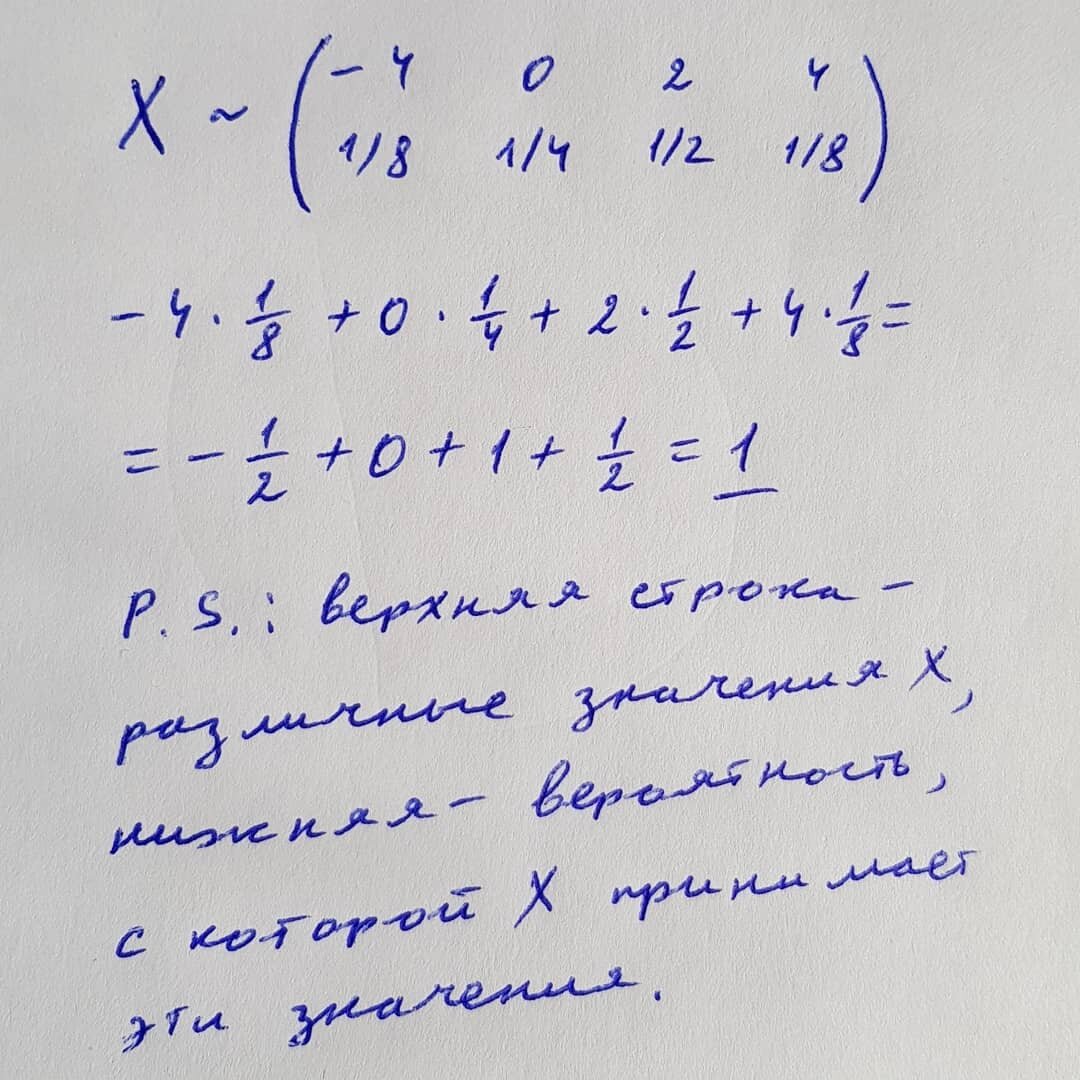 X ~ ( -4 0 2 4
1/8 1/4 1/2 1/8 )
-4 · 1/8 + 0 · 1/4 + 2 · 1/2 + 4 · 1/8 =
= - 1/2 + 0 + 1 + 1/2 = 1
P.S.: верхняя строка -
различные значения X,
нижняя - вероятность,
с которой X принимает
эти значения.